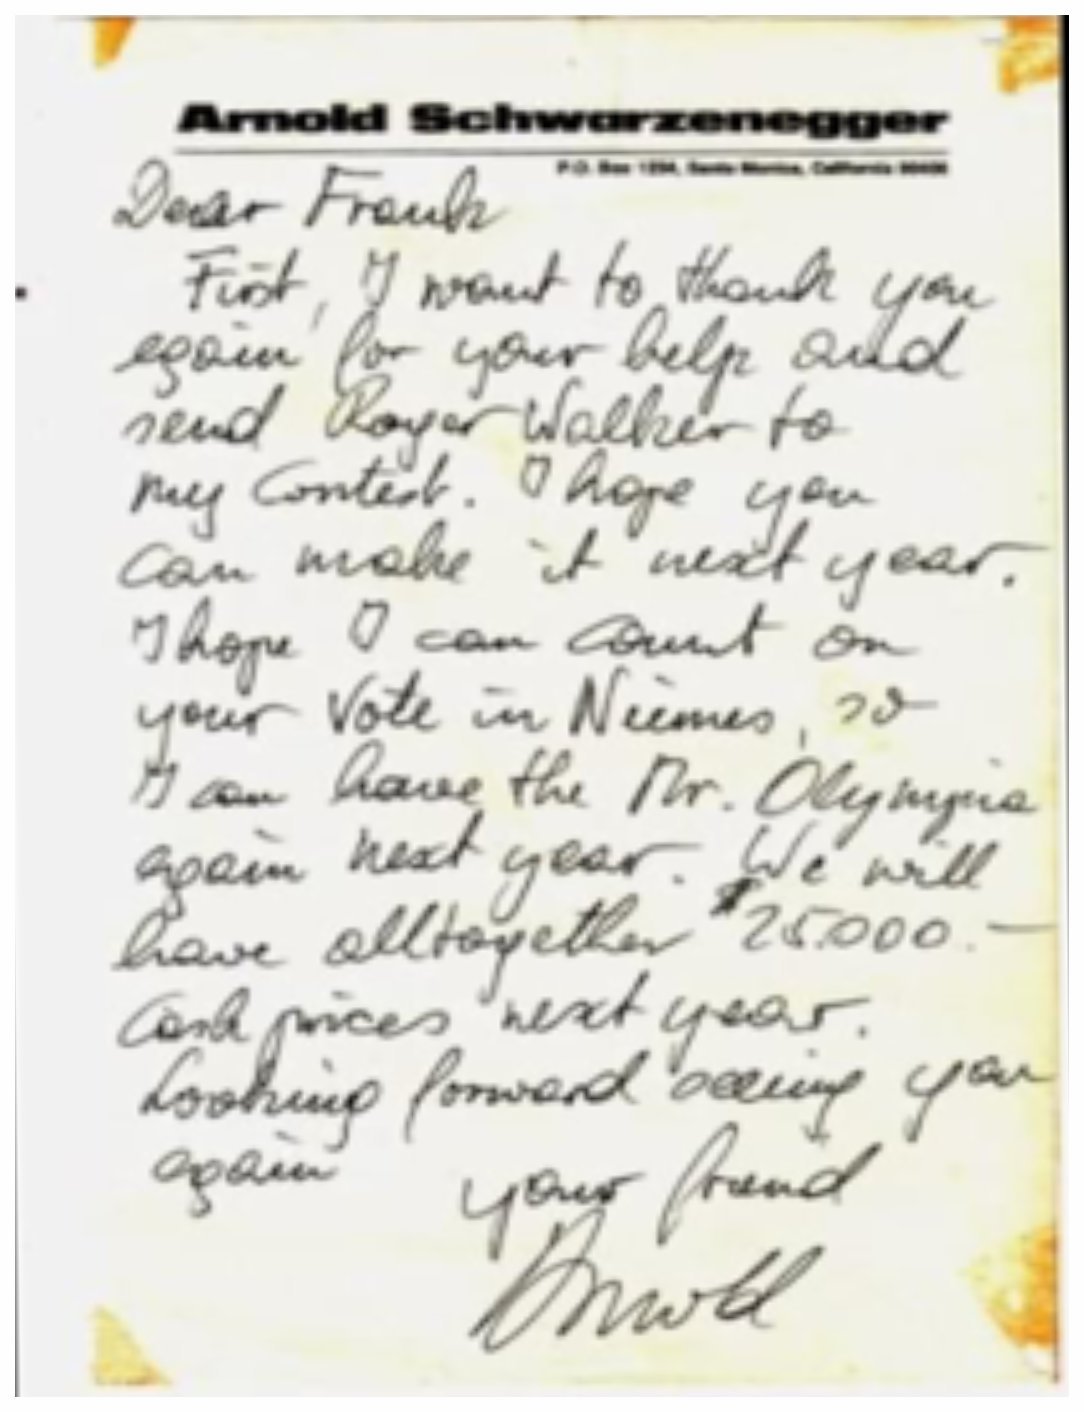 Arnold Schwarzenegger
P.O. Box 1234, Santa Monica, California 90406
Dear Frank
First, I want to thank you
again for your help and
send Roger Walker to
my Contest. I hope you
can make it next year.
I hope I can count on
your Vote in Niemes, so
I can have the Mr. Olympia
again next year. We will
have alltogether $25.000.—
Cash prices next year.
Looking forward seeing you
again
your friend
Arnold